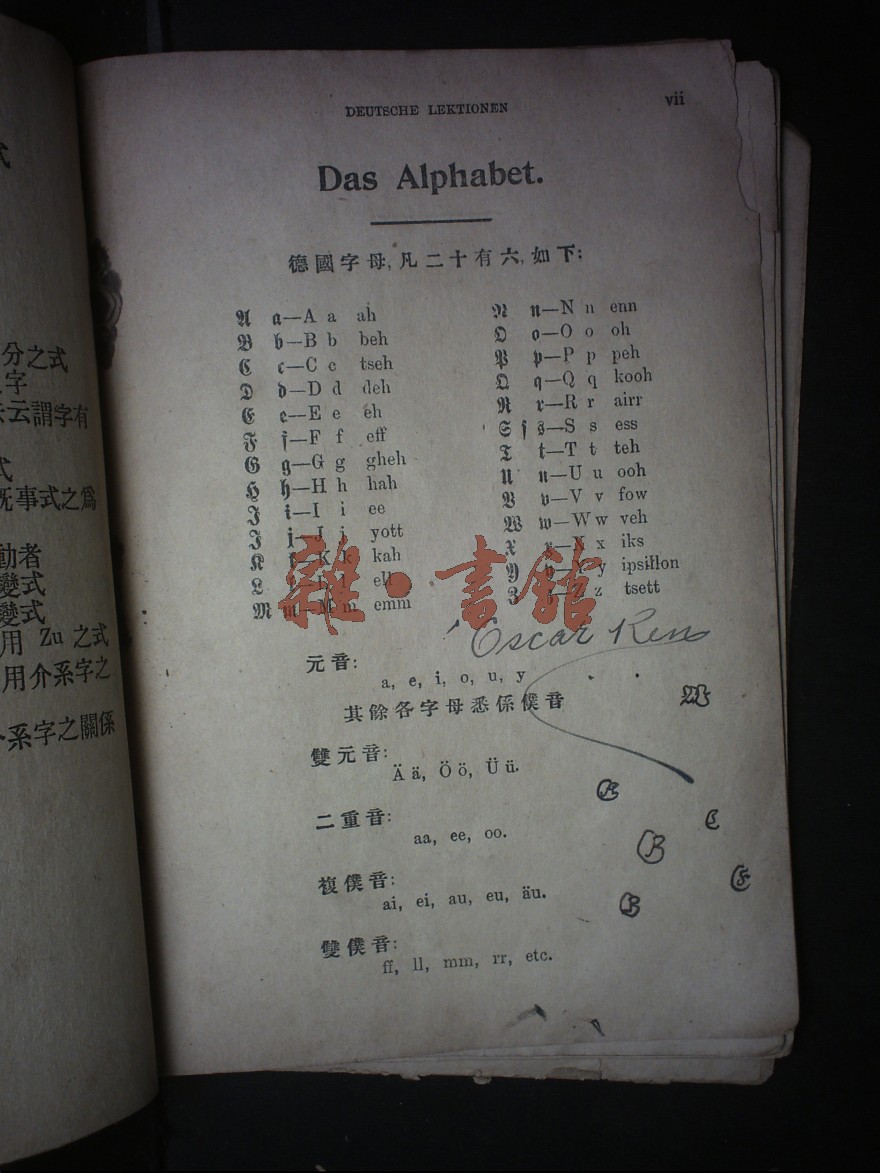 DEUTSCHE LEKTIONEN vii
Das Alphabet.
德國字母,凡二十有六,如下:
𝔄 𝔞—A a ah
𝔅 𝔟—B b beh
ℭ 𝔠—C c tseh
𝔇 𝔡—D d deh
𝔈 𝔢—E e eh
𝔉 𝔣—F f eff
𝔊 𝔤—G g gheh
ℌ 𝔥—H h hah
ℑ 𝔦—I i ee
𝔍 𝔧—J j yott
𝔎 𝔨—K k kah
𝔏 𝔩—L l ell
𝔐 𝔪—M m emm
𝔑 𝔫—N n enn
𝔒 𝔬—O o oh
𝔓 𝔭—P p peh
𝔔 𝔮—Q q kooh
ℜ 𝔯—R r airr
𝔖 ſ 𝔰—S s ess
𝔗 𝔱—T t teh
𝔘 𝔲—U u ooh
𝔙 𝔳—V v fow
𝔚 𝔴—W w veh
𝔛 𝔵—X x iks
𝔜 𝔶—Y y ipsillon
ℨ 𝔷—Z z tsett
雜·書館
Oscar Ren
元音:
a, e, i, o, u, y
其餘各字母悉係僕音
雙元音:
Ä ä, Ö ö, Ü ü.
二重音:
aa, ee, oo.
複僕音:
ai, ei, au, eu, äu.
雙僕音:
ff, ll, mm, rr, etc.
分之式
字
云謂字有
式
旣事式之爲
動者
變式
變式
用 Zu 之式
用介系字之
系字之關係